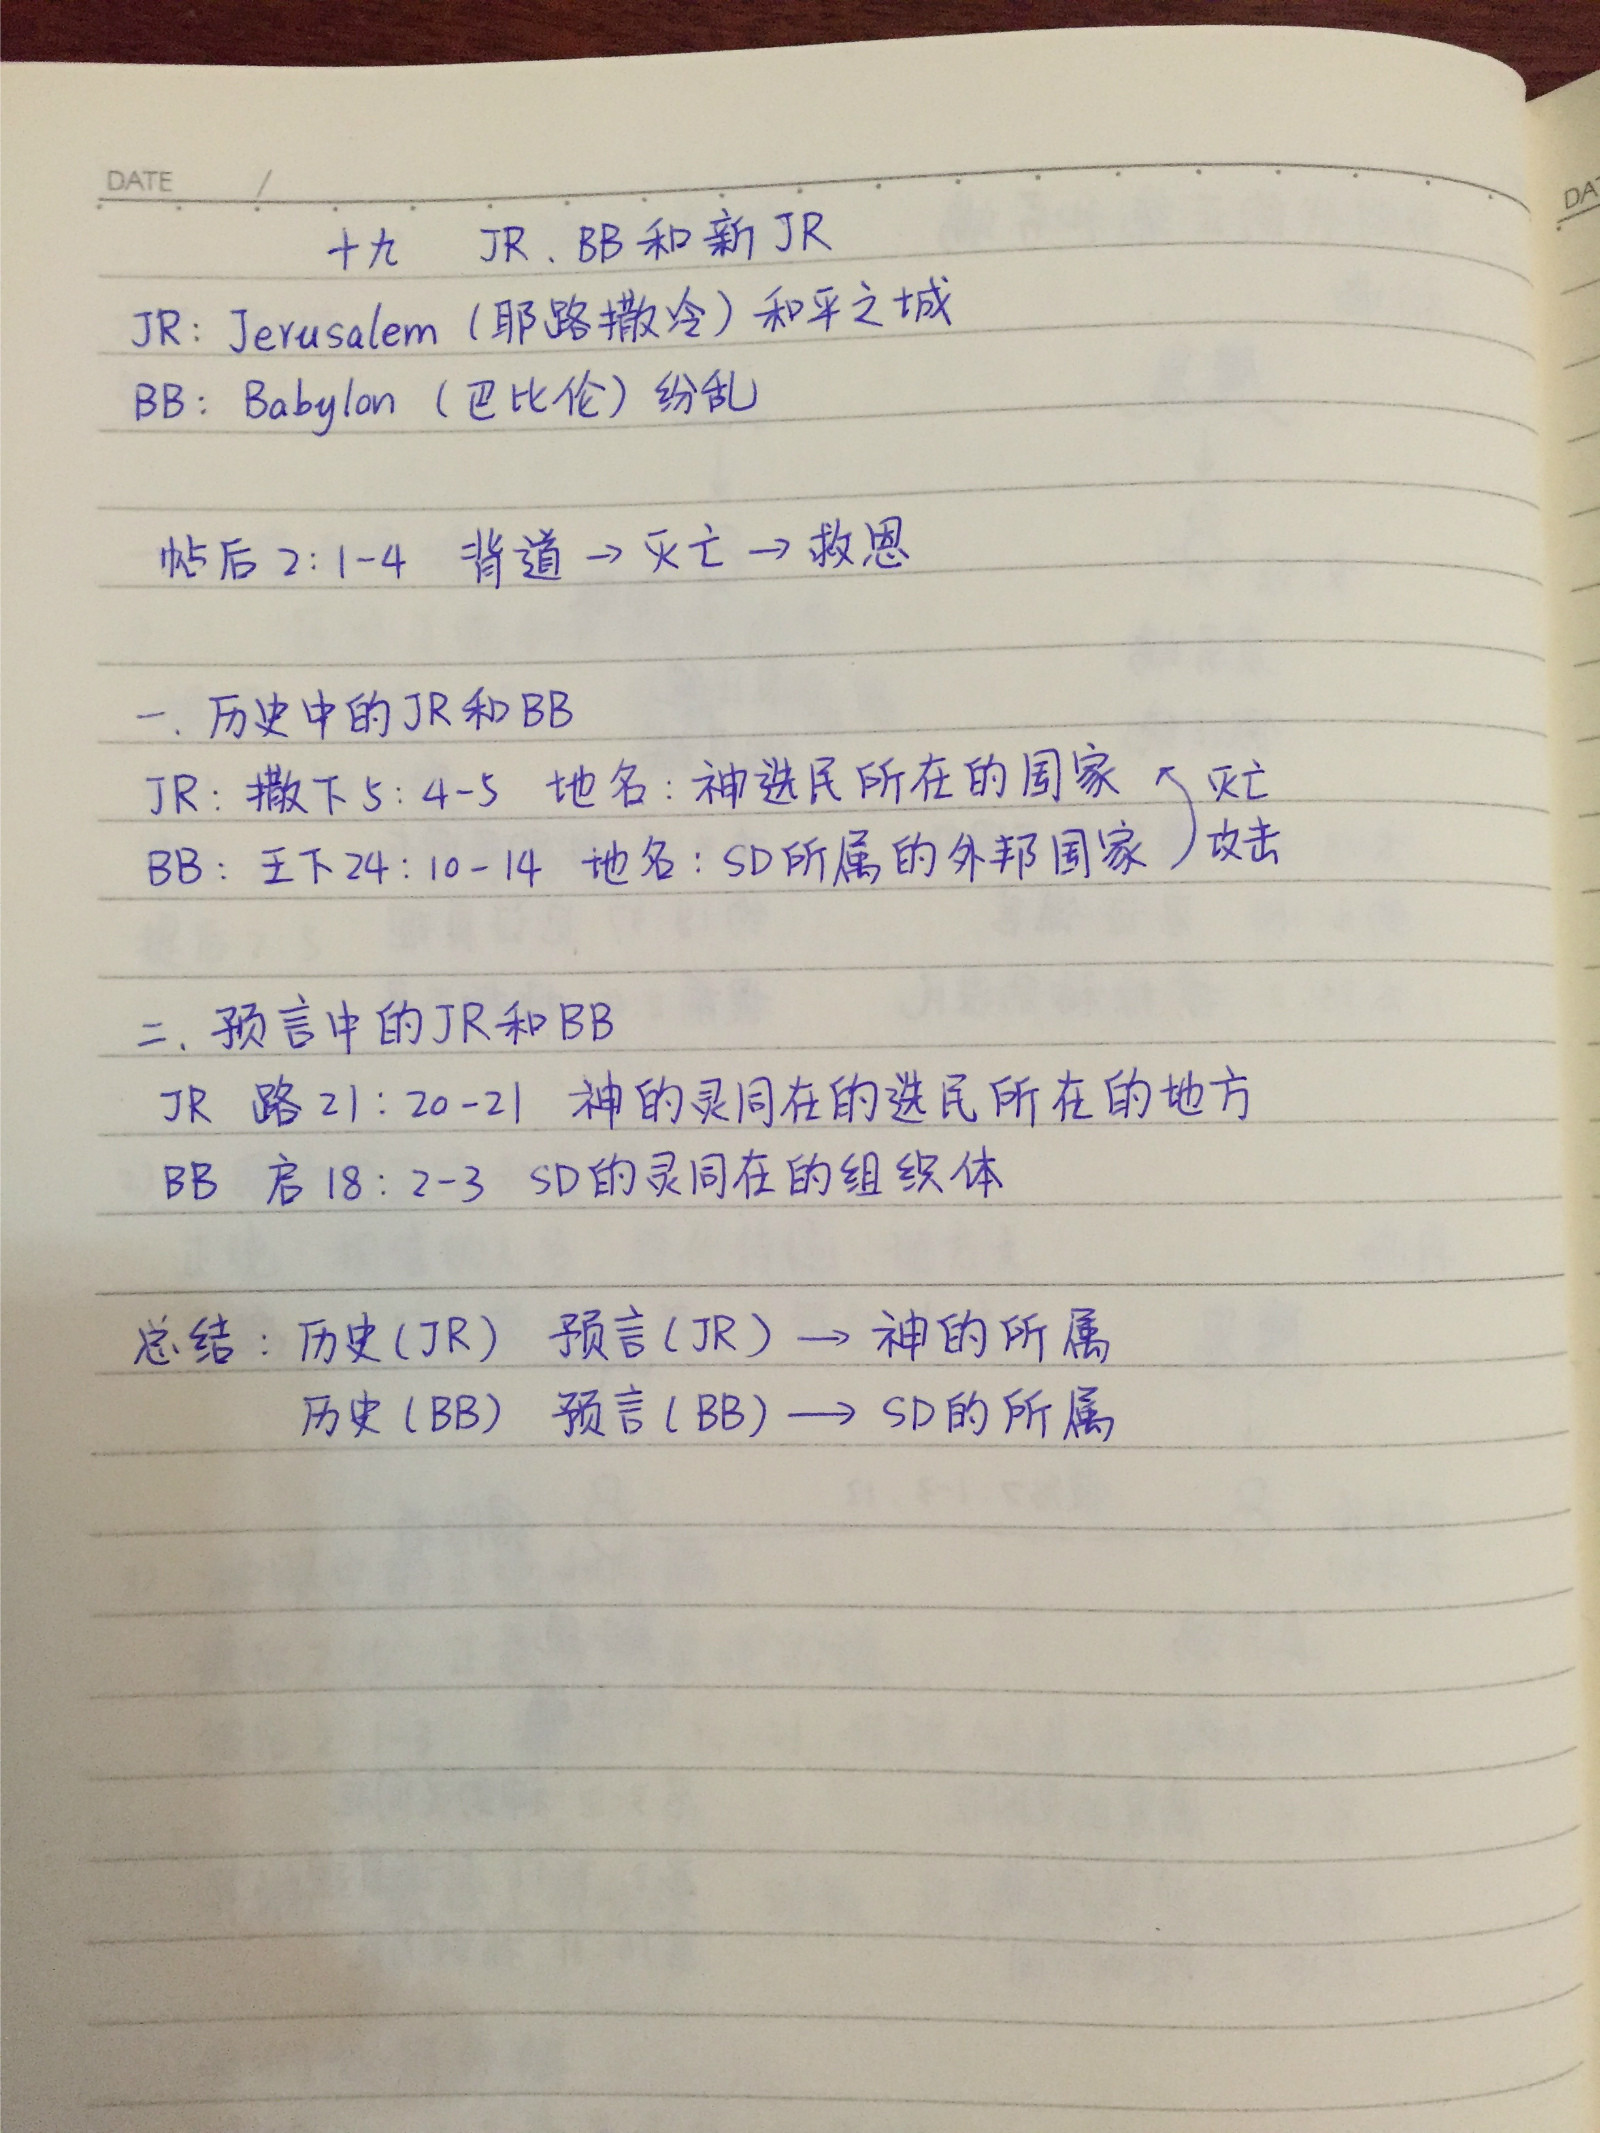 DATE /
十九 JR、BB和新JR
JR: Jerusalem (耶路撒冷) 和平之城
BB: Babylon (巴比伦) 纷乱
帖后2:1-4 背道→灭亡→救恩
一. 历史中的JR和BB
JR: 撒下5:4-5 地名: 神选民所在的国家 灭亡
BB: 王下24:10-14 地名: SD所属的外邦国家 攻击
二. 预言中的JR和BB
JR 路21:20-21 神的灵同在的选民所在的地方
BB 启18:2-3 SD的灵同在的组织体
总结: 历史(JR) 预言(JR) → 神的所属
历史(BB) 预言(BB) → SD的所属